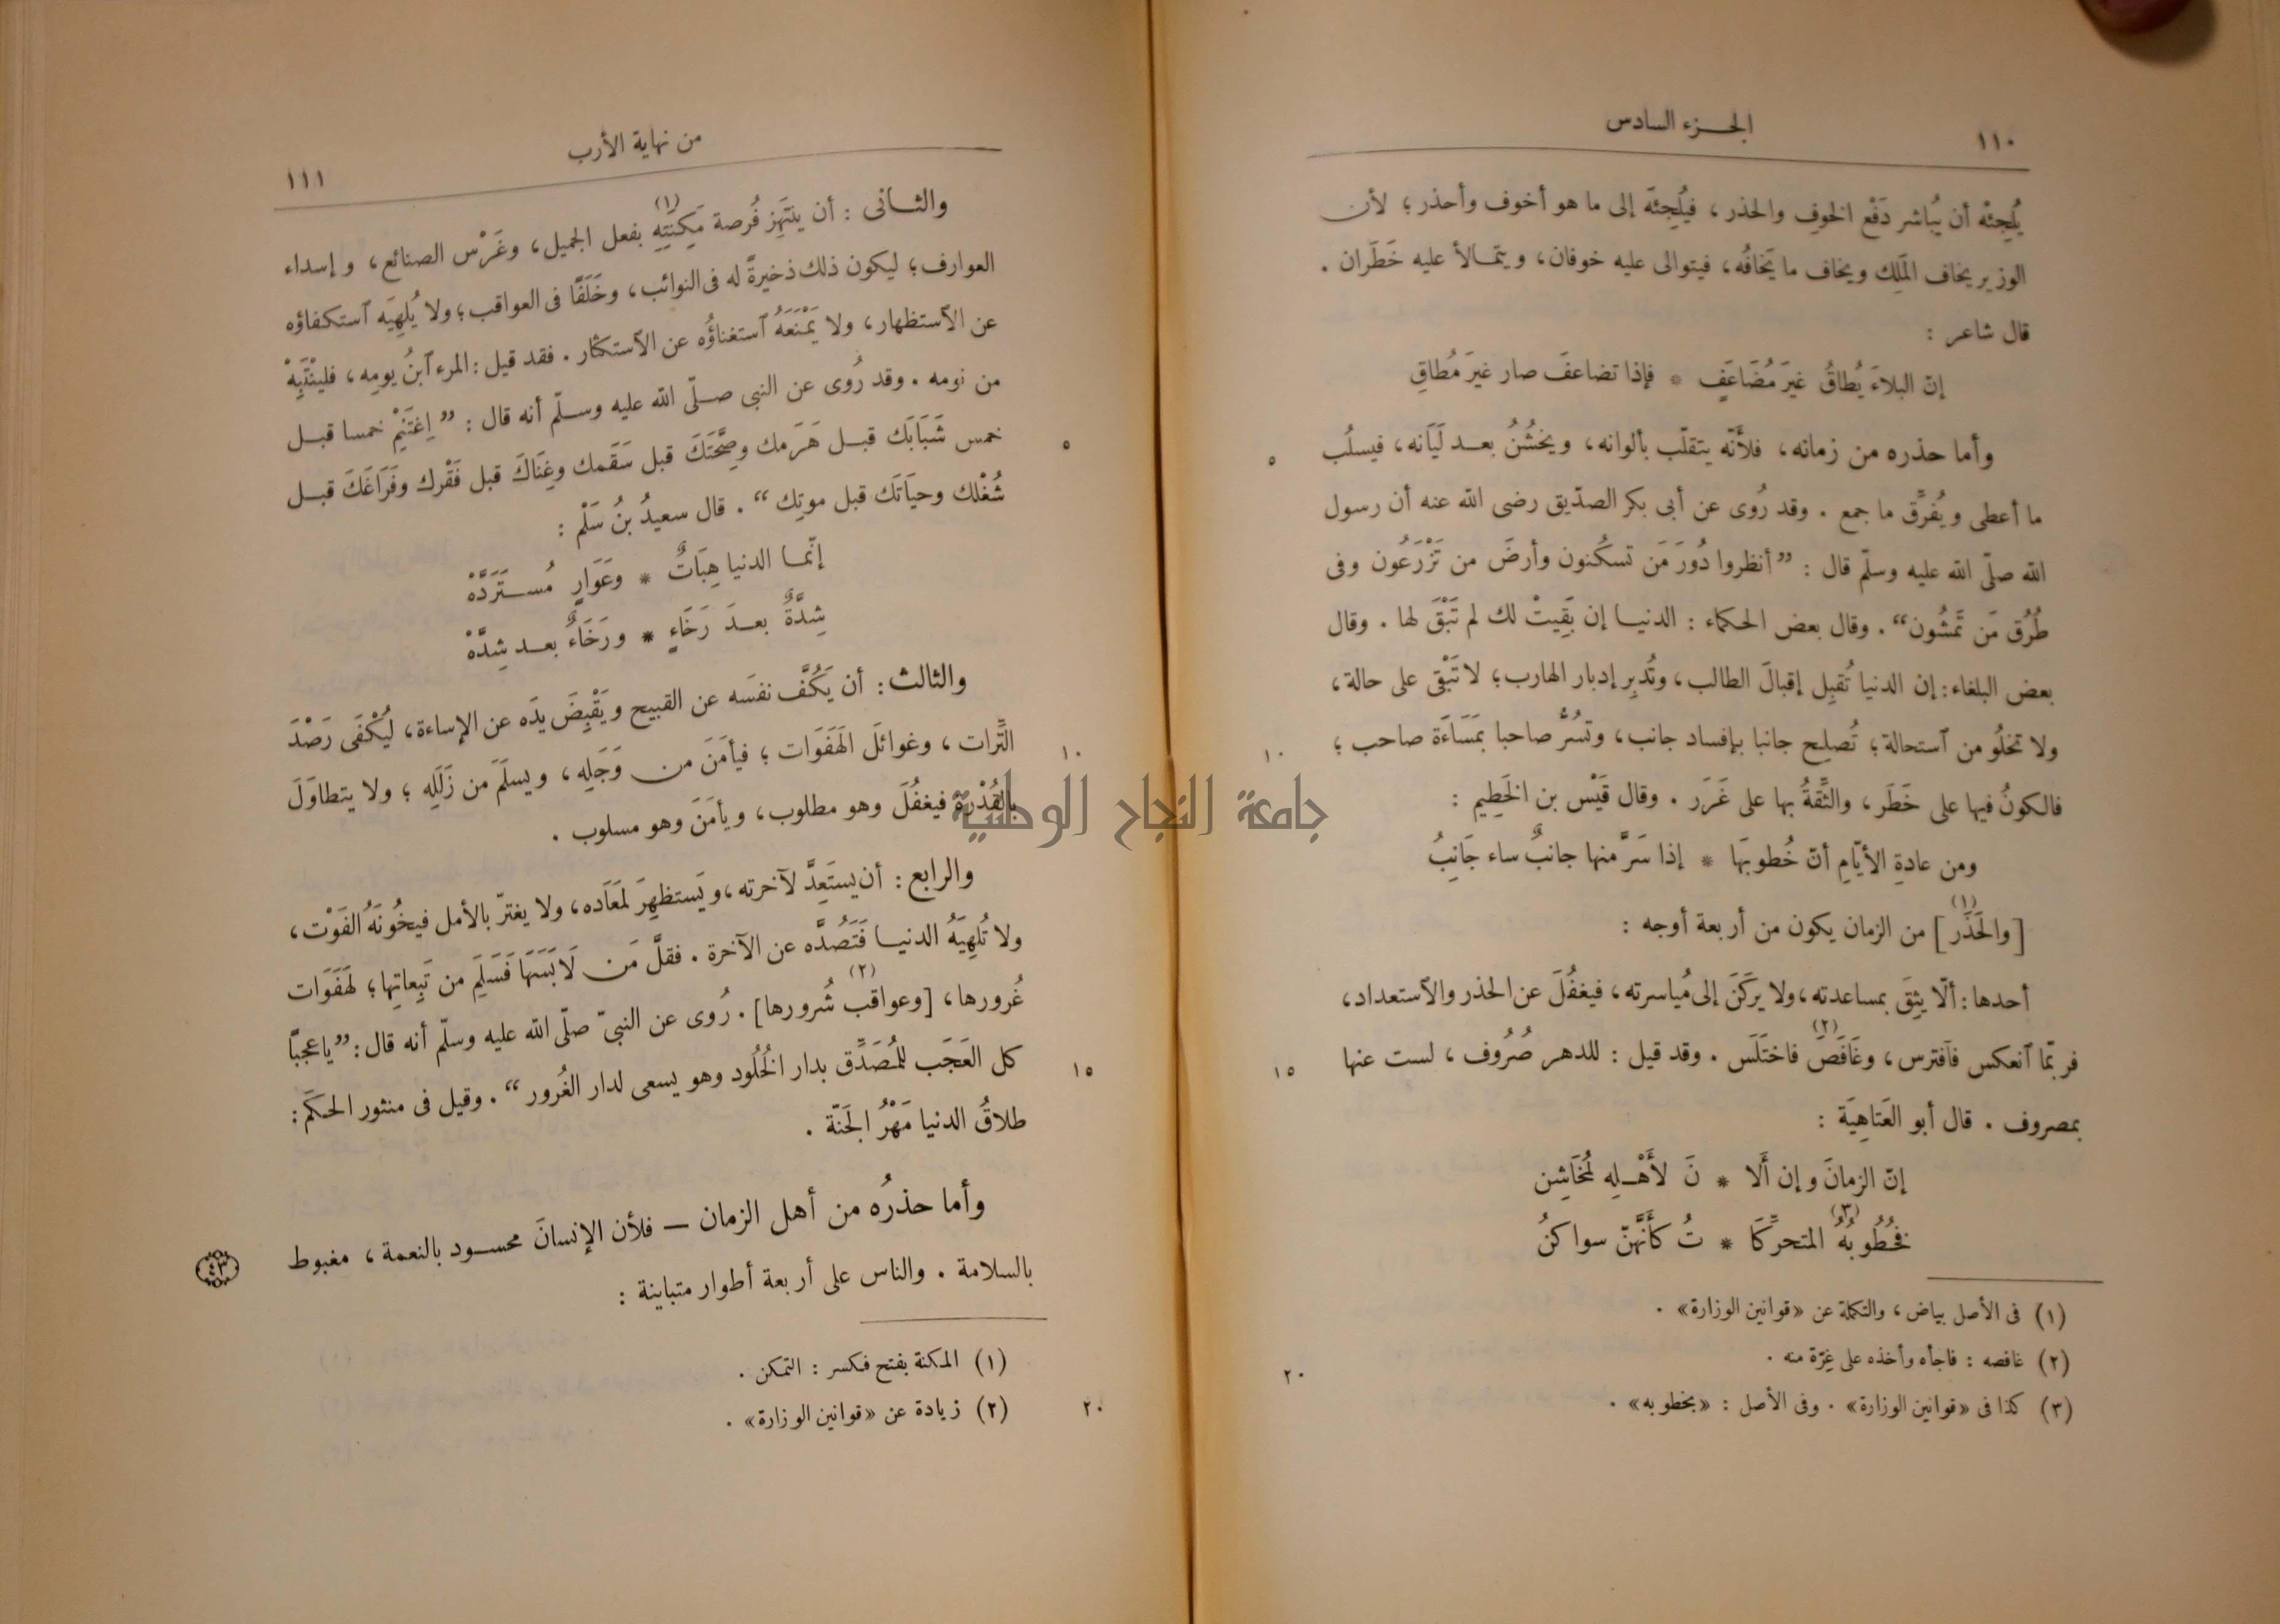 ١١٠
الجــزء السادس
يُلْجِئه أن يُباشر دَفْع الخوف والحذر، فيُلجِئه إلى ما هو أخوف وأحذر؛ لأن
الوزير يخاف المَلِك ويخاف ما يَخافُه، فيتوالى عليه خوفان، ويتمـالأ عليه خَطَران .
قال شاعر :
إنّ البلاءَ يُطاقُ غيرَ مُضَاعَفٍ * فإذا تضاعفَ صار غيرَ مُطاقِ
وأما حذره من زمانه، فلأنّه يتقلّب بألوانه، ويخشُنُ بعـد لَيَانه، فيسلُب
٥
ما أعطى ويُفرِّق ما جمع . وقد رُوى عن أبى بكر الصدّيق رضى الله عنه أن رسول
الله صلّى الله عليه وسلّم قال : ”أنظروا دُورَ مَن تسكُنون وأرضَ من تَزْرَعُون وفى
طُرُق مَن تَمشُون“ . وقال بعض الحكماء : الدنيـا إن بَقِيتْ لك لم تَبْقَ لها . وقال
بعض البلغاء : إن الدنيا تُقبِل إقبالَ الطالب، وتُدبِر إدبار الهارب؛ لا تَبْقى على حالة،
ولا تخلُو من آستحالة؛ تُصلِح جانبا بإفساد جانب، وتسُرُّ صاحبا بمَسَاءَة صاحب؛
١٠
فالكونُ فيها على خَطَر، والثِّقةُ بها على غَرَر . وقال قَيْس بن الخَطِيم :
ومن عادةِ الأيّامِ أنّ خُطوبَها * إذا سَرَّ منها جانبٌ ساء جَانِبُ
[والحَذَر](١) من الزمان يكون من أربعة أوجه :
أحدها : ألّا يثِقَ بمساعدته، ولا يركَنَ إلى مُياسرته، فيغفُلَ عن الحذر والآستعداد،
فربّما آنعكس فآفترس، وغَافَصَ(٢) فاختَلَس . وقد قيل : للدهر صُرُوف، لست عنها
١٥
بمصروف . قال أبو العَتَاهِيَة :
إنّ الزمانَ وإن أَلَا * نَ لأَهْـلِه لمُخَاشِن
فخُطُوبُهُ(٣) المتحرِّكَا * تُ كأَنَّهنّ سواكنُ
(١) فى الأصل بياض، والتكملة عن «قوانين الوزارة» .
(٢) غافصه : فاجأه وأخذه على غِرّة منه .
٢٠
(٣) كذا فى «قوانين الوزارة» . وفى الأصل : «بخطوبه» .
من نهاية الأرب
١١١
والثـانى : أن ينتَهِز فُرصة مَكِنَتِهِ(١) بفعل الجميل، وغَرْس الصنائع، وإسداء
العوارف؛ ليكون ذلك ذخيرةً له فى النوائب، وخَلَفًا فى العواقب؛ ولا يُلهِيَه آستكفاؤه
عن الآستظهار، ولا يَمْنَعَهُ آستغناؤُه عن الآستكثار . فقد قيل : المرء آبنُ يومِه، فلينْتَبِهْ
من نومه . وقد رُوى عن النبى صـلّى الله عليه وسـلّم أنه قال : ”إغتَنِمْ خمسا قبـل
خمس شَبَابَك قبـل هَرَمك وصِحَّتَكَ قبل سَقَمك وغِنَاكَ قبل فَقْرك وفَرَاغَكَ قبـل
٥
شُغْلك وحيَاتَك قبل موتِك“ . قال سعيدُ بنُ سَلْم :
إنّمـا الدنيا هِبَاتٌ * وعَوَارٍ مُسـتَرَدَّهْ
شِدَّةٌ بعـدَ رَخَاءٍ * ورَخَاءٌ بعـد شِدَّهْ
والثالث : أن يَكُفَّ نفسَه عن القبيح ويَقْبِضَ يدَه عن الإساءة، ليُكْفَى رَصْدَ
التِّرات، وغوائلَ الهَفَوَات؛ فيأمَنَ من وَجَلِه، ويسلَمَ من زَلَلِه؛ ولا يتطاوَلَ
١٠
بالقُدْرة فيغفُلَ وهو مطلوب، ويأمَنَ وهو مسلوب .
جامعة النجاح الوطنية
والرابع : أن يستَعِدَّ لآخرته، ويَستظهِرَ لمَعَاده، ولا يغترّ بالأمل فيخُونَهُ الفَوْت،
ولا تُلهِيَهُ الدنيـا فَتَصُدَّه عن الآخرة . فقلَّ مَن لَابَسَهَا فَسَلِمَ من تَبِعاتِها؛ لهَفَوَات
غُرورها، [وعواقب(٢) شُرورها] . رُوى عن النبىّ صلّى الله عليه وسلّم أنه قال : ”يا عجبًا
كل العَجَب للمُصَدِّق بدار الخُلُود وهو يسعى لدار الغُرور“ . وقيل فى منثور الحكَم :
١٥
طلاقُ الدنيا مَهْرُ الجَنّة .
وأما حذرُه من أهل الزمان — فلأن الإنسانَ محسـود بالنعمة، مغبوط
٤٣
بالسلامة . والناس على أربعة أطوار متباينة :
(١) المكنة بفتح فكسر : التمكن .
(٢) زيادة عن «قوانين الوزارة» .
٢٠